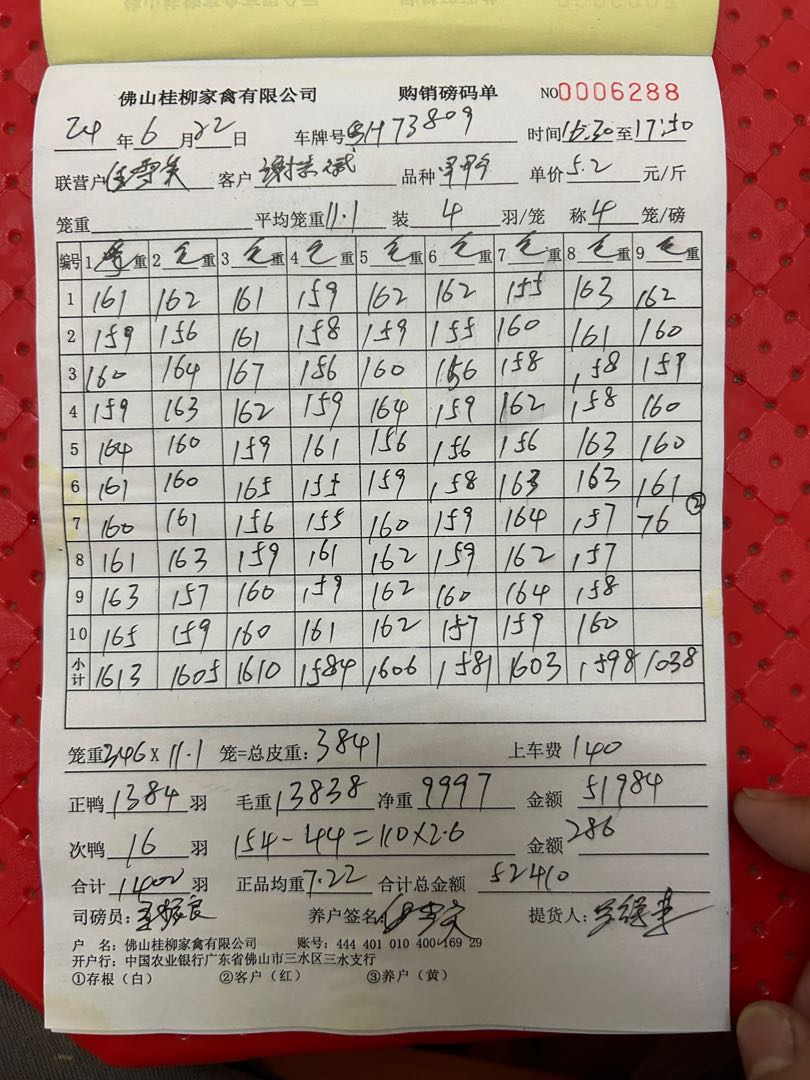 佛山桂柳家禽有限公司 购销磅码单 NO0006288
24年6月22日 车牌号 H73809 时间15:30至17:50
联营户 客户 谢 斌 品种 单价5.2元/斤
笼重 平均笼重11.1 装4羽/笼 称4笼/磅
编号 1毛重 2毛重 3毛重 4毛重 5毛重 6毛重 7毛重 8毛重 9毛重
1 161 162 161 159 162 162 155 163 162
2 159 156 161 158 159 155 160 161 160
3 160 164 167 156 160 156 158 158 159
4 159 163 162 159 164 159 162 158 160
5 164 160 159 161 156 156 156 163 160
6 161 160 165 155 159 158 163 163 161
7 160 161 156 155 160 159 164 157 76 ②
8 161 163 159 161 162 159 162 157
9 163 157 160 159 162 160 164 158
10 165 159 160 161 162 157 159 160
小计 1613 1605 1610 1584 1606 1581 1603 1598 1038
笼重346X11.1笼=总皮重:3841 上车费140
正鸭1384羽 毛重13838 净重9997 金额51984
次鸭16羽 154-44=110X2.6 金额286
合计1400羽 正品均重7.22 合计总金额52410
司磅员: 养户签名: 提货人:
户 名:佛山桂柳家禽有限公司 账号:444 401 010 400 169 29
开户行:中国农业银行广东省佛山市三水区三水支行
①存根(白) ②客户(红) ③养户(黄)